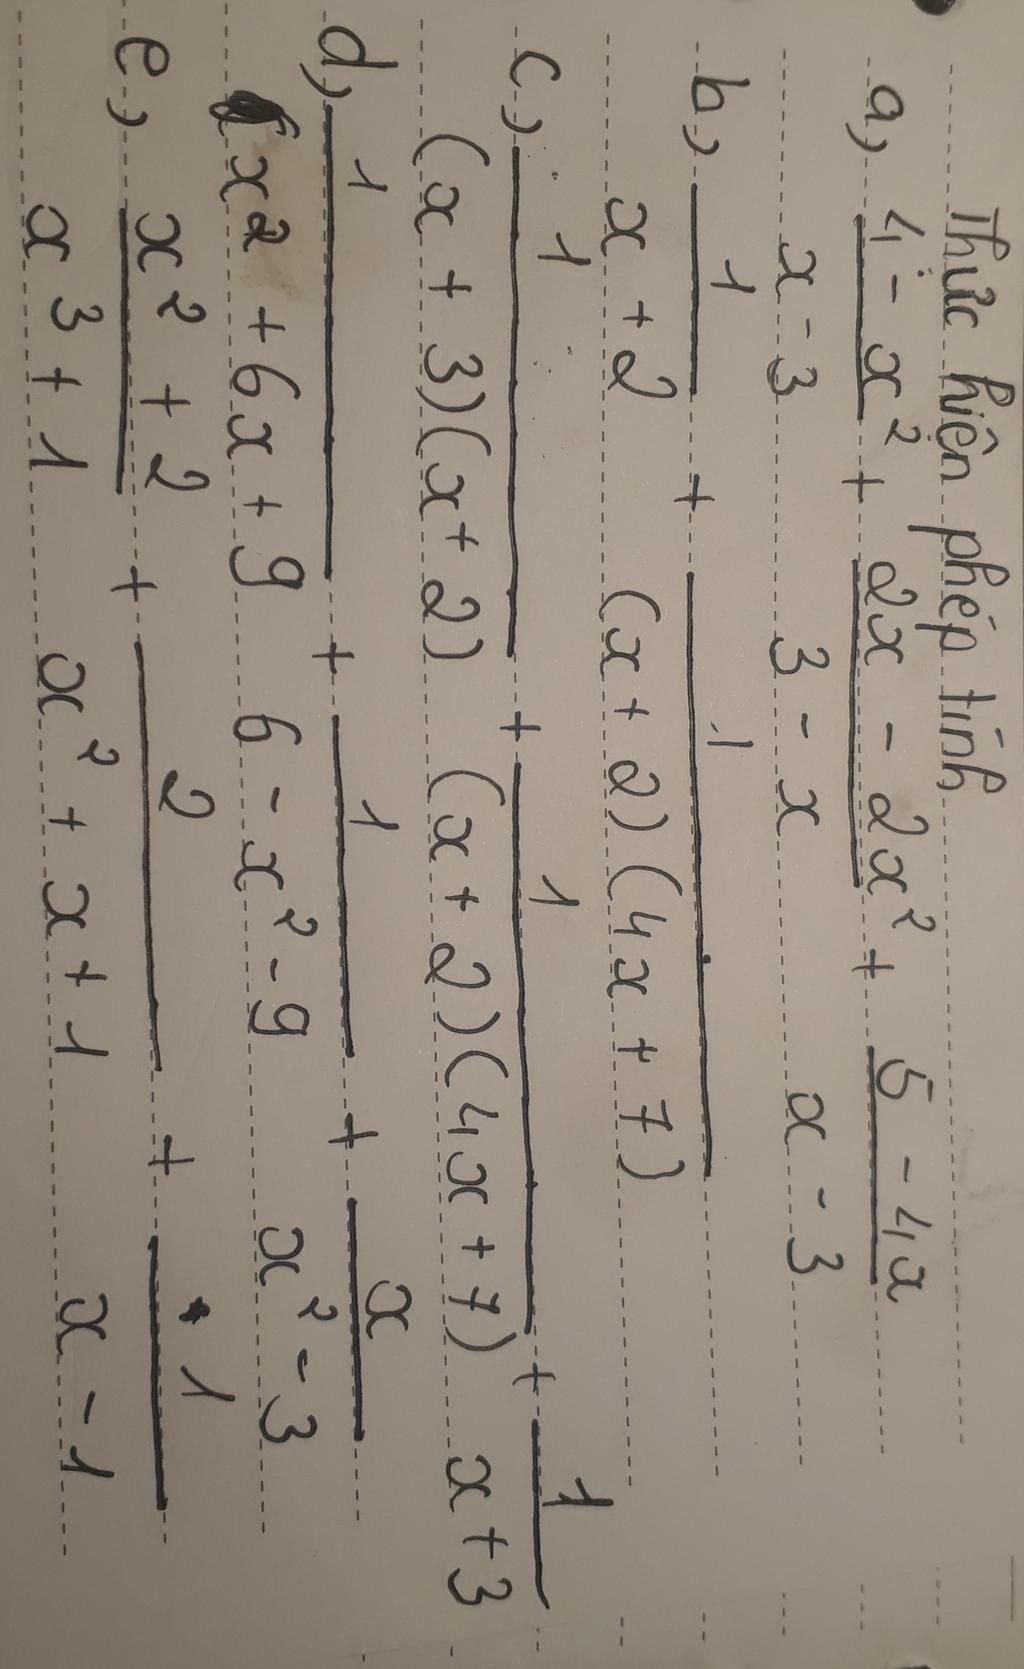 Thực hiện phép tính
a, (4 - x²)/(x - 3) + (2x - 2x²)/(3 - x) + (5 - 4x)/(x - 3)
b, 1/(x + 2) + 1/((x + 2)(4x + 7))
c, 1/((x + 3)(x + 2)) + 1/((x + 2)(4x + 7)) + 1/(x + 3)
d, 1/(x² + 6x + 9) + 1/(6 - x² - 9) + x/(x² - 3)
e, (x² + 2)/(x³ + 1) + 2/(x² + x + 1) + 1/(x - 1)